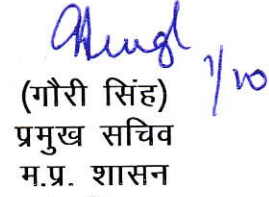 1/10
(गौरी सिंह)
प्रमुख सचिव
म.प्र. शासन